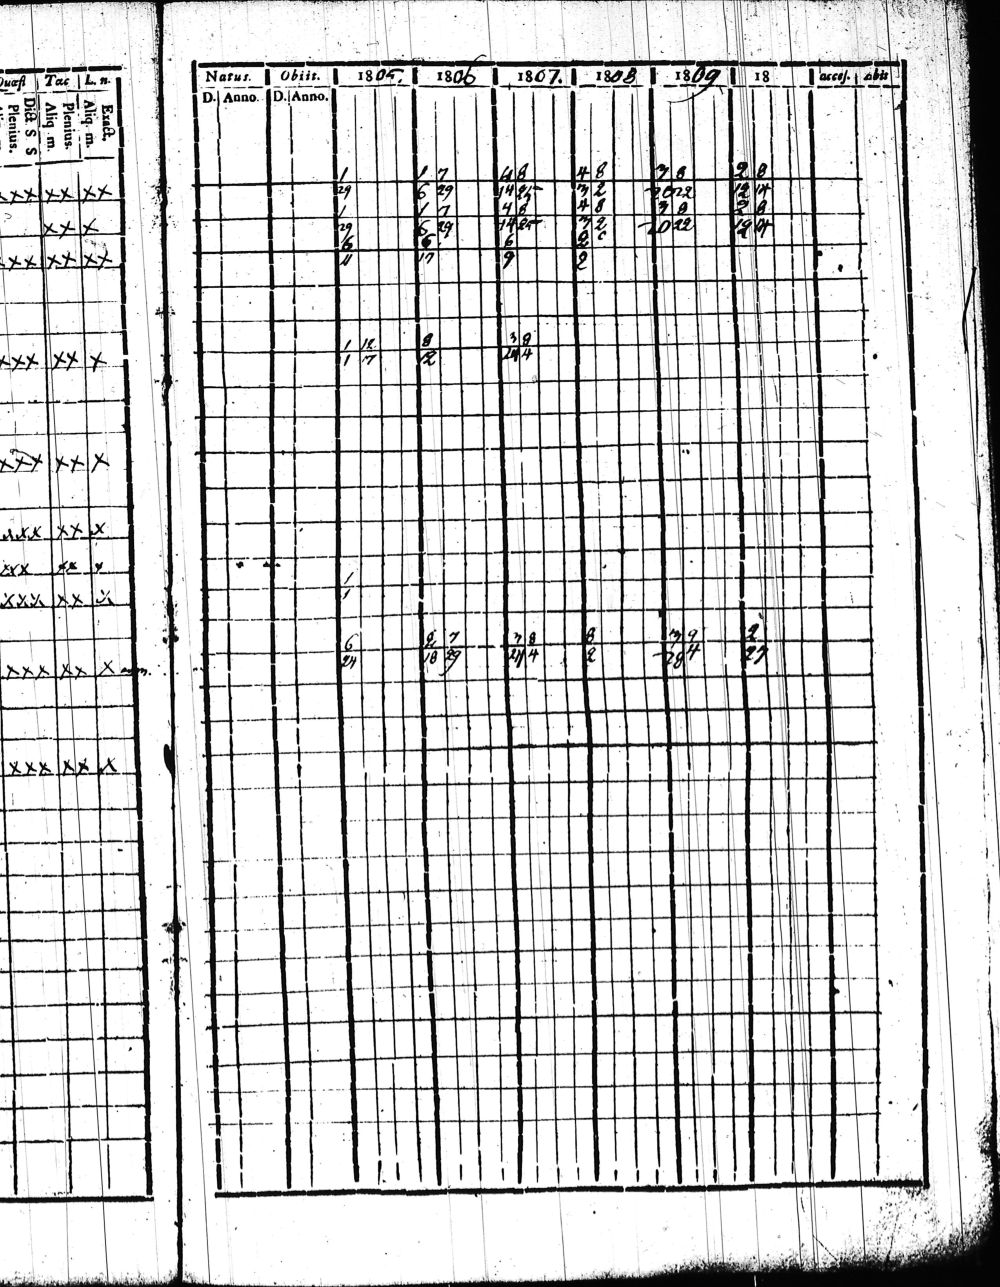 Quæst Tac L. n.
Dict S S
Plenius.
Aliq m.
Plenius.
Aliq. m.
Exact.
xxx xx xx
xx x
xxx xx xx
xxx xx x
xxx xx x
xxx xx x
xxx xx x
xxx xx x
xxx xx x
xxx xx x
Natus. Obiit. 1805. 1806 1807. 1808 1809 18 accej. abit
D. Anno. D. Anno.
1 1 7 4 8 4 8 3 8 2 8
29 6 29 14 25 3 2 20 22 12 14
1 1 7 4 8 4 8 3 8 2 8
29 6 29 14 25 3 2 20 22 12 14
6 6 6 2
11 17 9 2
1 12 8 3 8
1 7 12 24 4
1
1
6 2 7 3 8 8 3 9 2
24 18 29 24 4 2 28 4 27